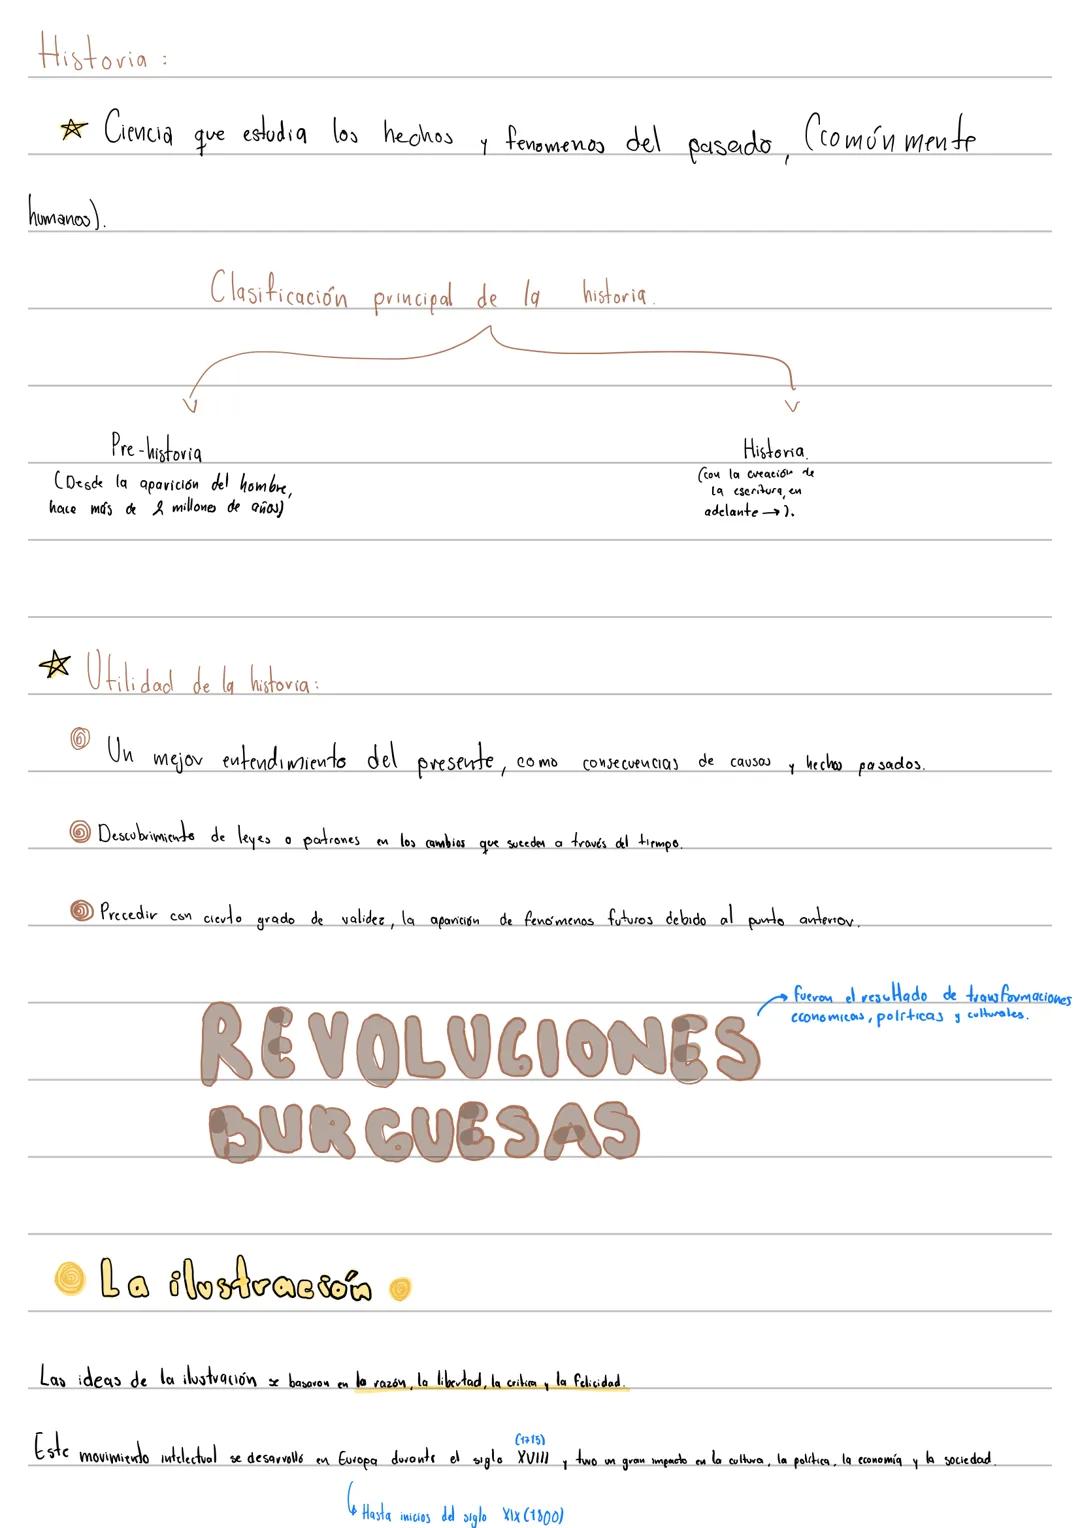 Historia :
Ciencia que estudia los hechos y fenomenos del pasado, (comúnmente
humanos).
Clasificación principal de la historia.
Pre-historia
(Desde la aparición del hombre,
hace más de 2 millones de años)
Historia.
(con la creación de
la escritura, en
adelante →).
Utilidad de la historia:
Un mejor entendimiento del presente, como consecuencias de causas y hechos pasados.
Descubrimiento de leyes o patrones en los cambios que suceden a través del tiempo.
Precedir con cierto grado de validez, la aparición de fenómenos futuros debido al punto anterior.
→ fueron el resultado de transformaciones
economicas, políticas y culturales.
REVOLUCIONES
BURGUESAS
La ilustración
Las ideas de la ilustración se basaron en la razón, la libertad, la crítica y la felicidad.
(1715)
Este movimiento intelectual se desarrolló en Europa durante el siglo XVIII y tuvo un gran impacto en la cultura, la política, la economía y la sociedad.
↳ Hasta inicios del siglo XIX (1800)